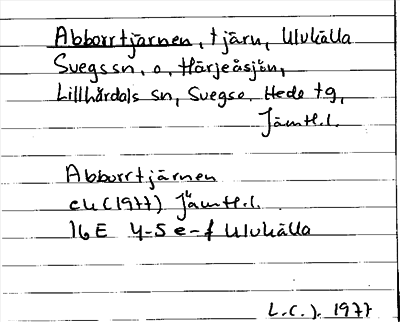 Abborrtjärnen, tjärn, Ulvkälla
Svegs sn, o, Härjeåsjön,
Lillhärdals sn, Svegs o. Hede tg,
Jämtl.l.
Abborrtjärnen
ek (1977) Jämtl.l.
16E 4-5 e-f Ulvkälla
L.C.J. 1977